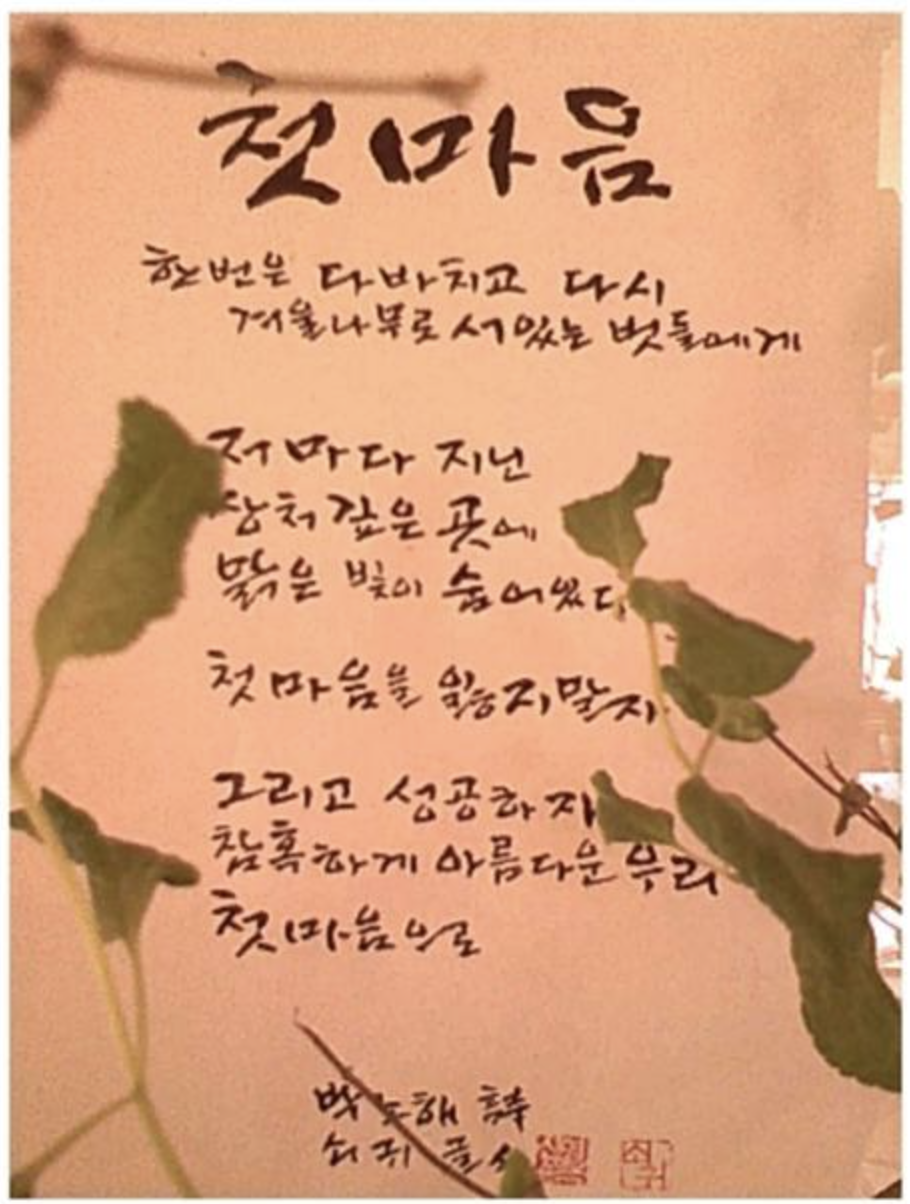 첫마음
한번은 다바치고 다시
겨울나무로 서있는 벗들에게
저마다 지닌
상처 깊은 곳에
맑은 빛이 숨어있다
첫마음을 잃지말자
그리고 성공하자
참혹하게 아름다운 우리
첫마음으로
박노해 詩
쇠귀